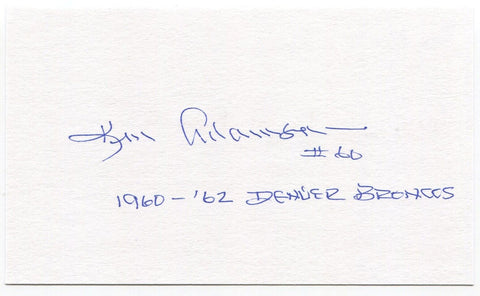 Ken Adamson
#60
1960-'62 DENVER BRONCOS